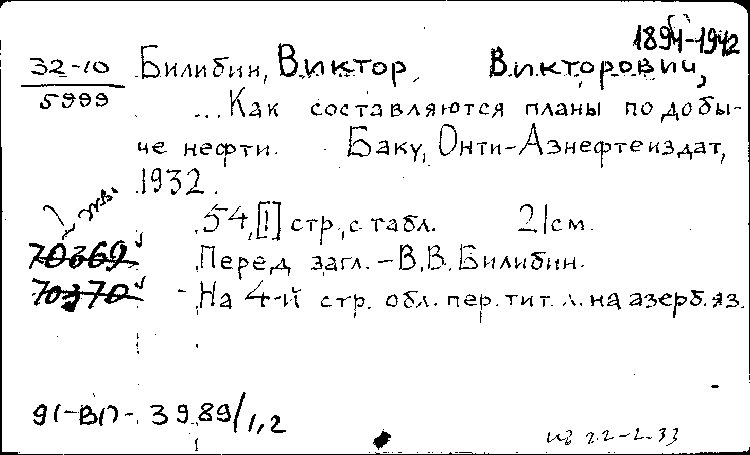 1894-1942
32-10 Билибин, Виктор Викторович,
5999
...Как составляются планы по добы-
че нефти. Баку, Онти-Азнефтеиздат,
1932.
54,[1] стр., с табл. 21см.
70369 Перед загл. - В.В. Билибин.
70370 - На 4-й стр. обл. пер. тит. л. на азерб. яз.
3989/1,2